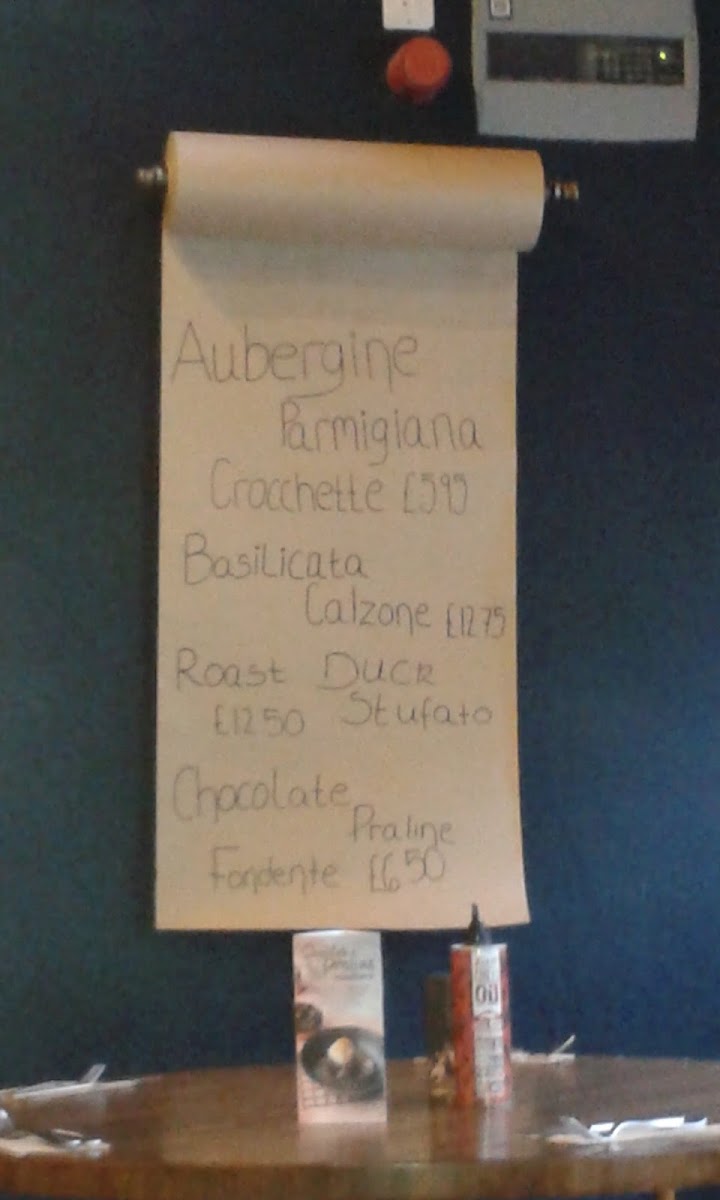 Aubergine
Parmigiana
Crocchette £595
Basilicata
Calzone £12.75
Roast Duck
£12.50 Stufato
Chocolate
Praline
Fondente £6.50
Oil